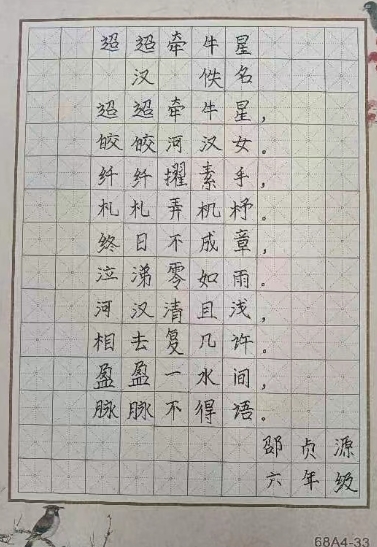 迢迢牵牛星
汉 佚名
迢迢牵牛星，
皎皎河汉女。
纤纤擢素手，
札札弄机杼。
终日不成章，
泣涕零如雨。
河汉清且浅，
相去复几许。
盈盈一水间，
脉脉不得语。
邵贞源
六年级
68A4-33